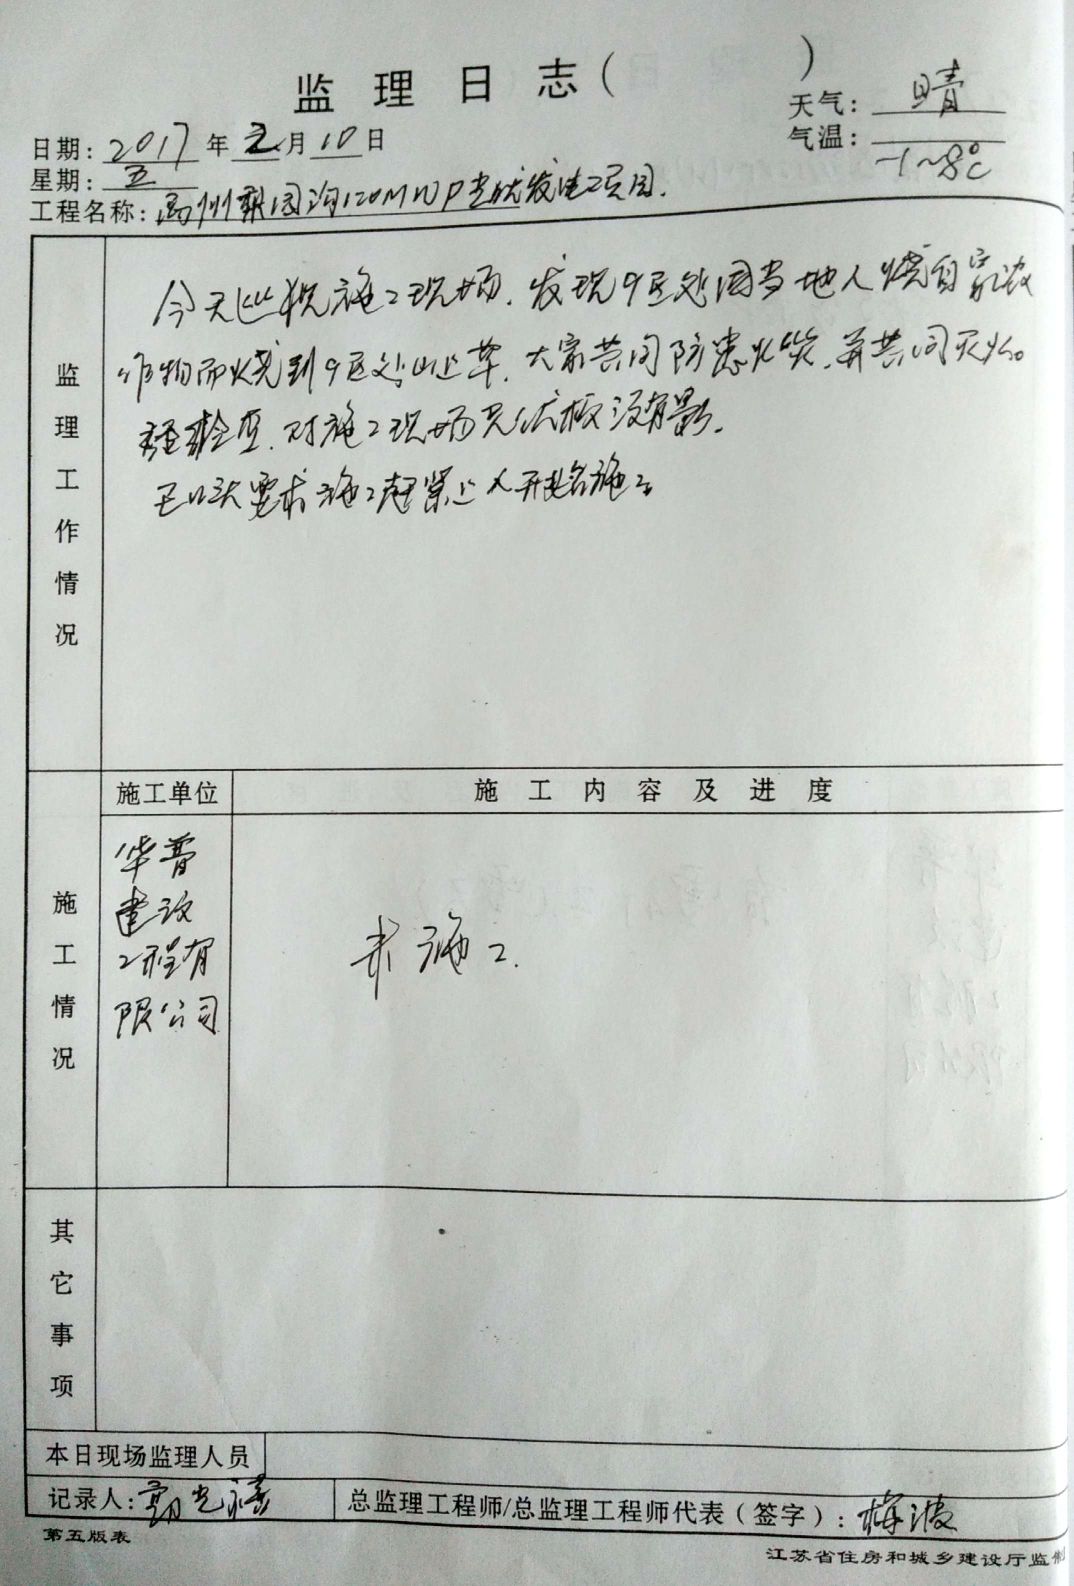 监理日志(            )
天气: 晴
日期: 2017年2月10日
气温: -1~8℃
星期: 五
工程名称: 禹州梨园沟120MWP光伏发电项目.
监理工作情况
今天巡视施工现场.发现9区处因当地人烧自家农
作物而烧到9区处山上草.大家共同防患火灾.并共同灭火。
经检查.对施工现场光伏板没有影.
已口头要求施工赶紧上人开始施工
施工单位
施工内容及进度
施工情况
华普
建设
工程有
限公司
未施工.
其它事项
本日现场监理人员
记录人:
总监理工程师/总监理工程师代表(签字): 梅波
第五版表
江苏省住房和城乡建设厅监制